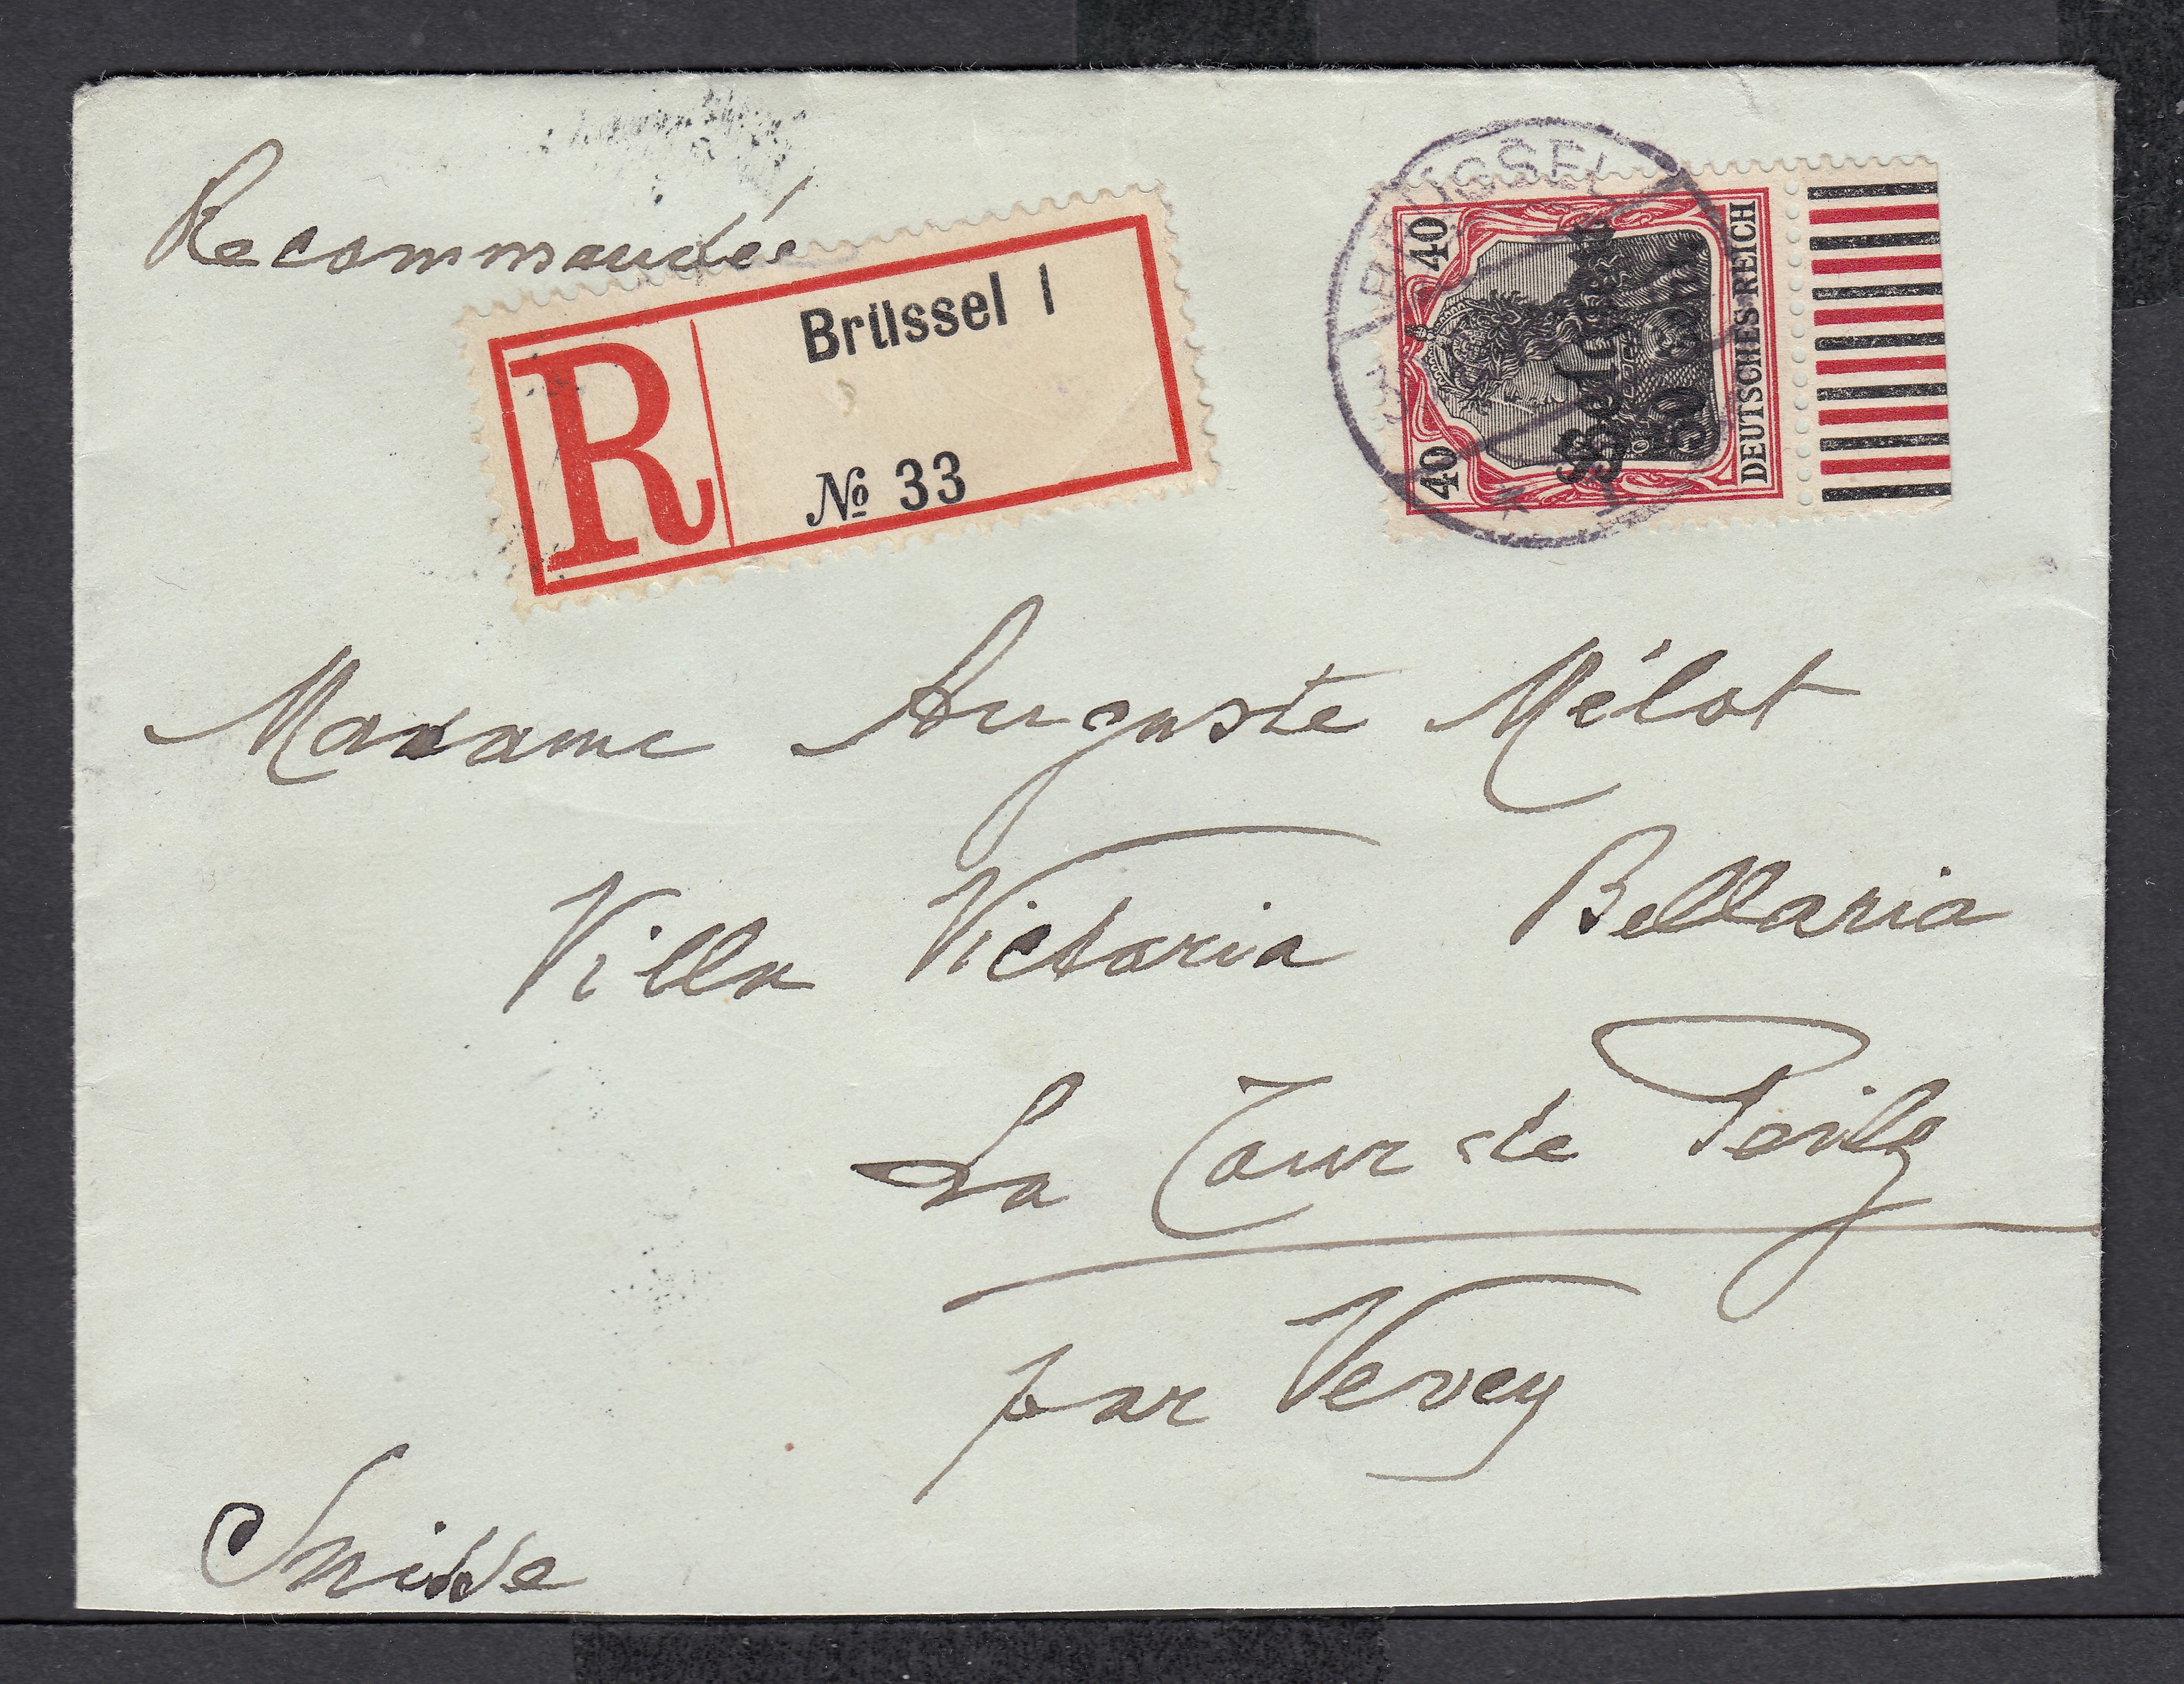 Recommandée
R
Brüssel 1
№ 33
BRÜSSEL
* 1
40 40
DEUTSCHES REICH
Belgien
50 Cent.
Madame Auguste Mélot
Villa Victoria Bellaria
La Tour de Peilz
par Vevey
Suisse